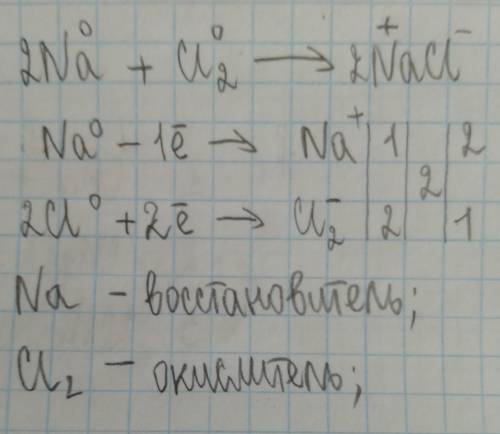 2Na⁰ + Cl₂⁰ → 2Na⁺Cl⁻
Na⁰ − 1ē → Na⁺ | 1 | 2 | 2
2Cl⁰ + 2ē → Cl₂⁻ | 2 | | 1
Na – восстановитель;
Cl₂ – окислитель;